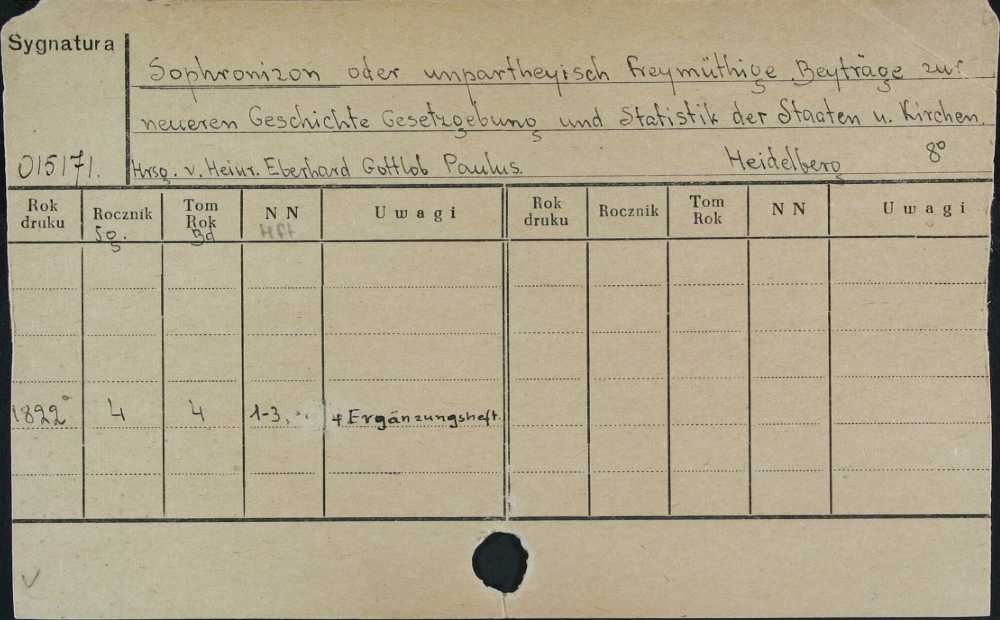 Sygnatura
Sophronizon oder unpartheyisch freymüthige Beyträge zur
neueren Geschichte Gesetzgebung und Statistik der Staaten u. Kirchen.
015171. Hrsg. v. Heinr. Eberhard Gottlob Paulus. Heidelberg 8°
Rok druku Rocznik Tom Rok NN Uwagi Rok druku Rocznik Tom Rok NN Uwagi
Jg. Bd Hft
1822 4 4 1-3, 4 Ergänzungsheft.